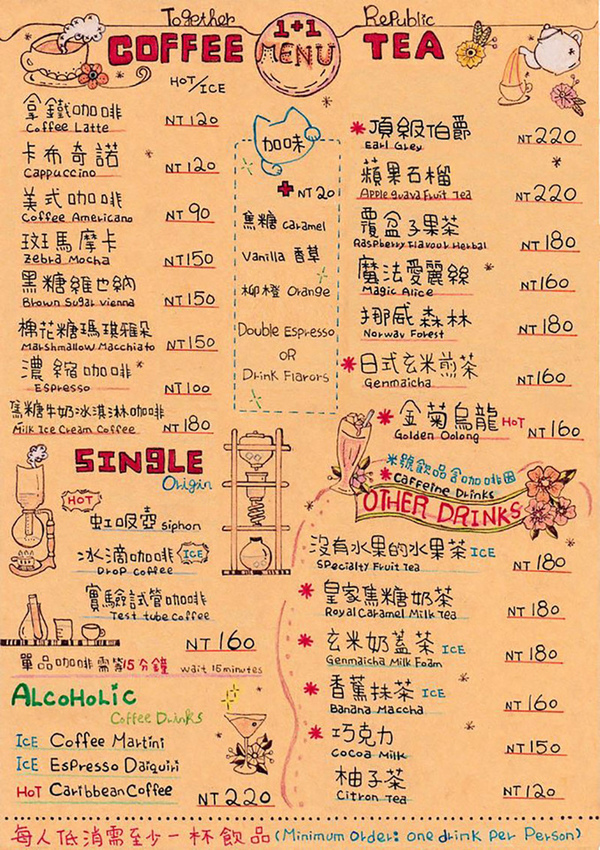 Together Republic
1+1
COFFEE MENU TEA
HOT/ICE
拿鐵咖啡
Coffee Latte NT 120
卡布奇諾
Cappuccino NT 120
美式咖啡
Coffee Americano NT 90
斑馬摩卡
Zebra Mocha NT 150
黑糖維也納
Brown Sugar Vienna NT 150
棉花糖瑪琪雅朵
Marshmallow Macchiato NT 150
濃縮咖啡
Espresso NT 100
焦糖牛奶冰淇淋咖啡
Milk Ice Cream Coffee NT 180
加味
+ NT 20
焦糖 Caramel
Vanilla 香草
柳橙 Orange
Double Espresso
OR
Drink Flavors
*頂級伯爵
Earl Grey NT 220
蘋果石榴
Apple guava Fruit Tea NT 220
覆盆子果茶
Raspberry Flavour Herbal NT 180
魔法愛麗絲
Magic Alice NT 160
挪威森林
Norway Forest NT 180
*日式玄米煎茶
Genmaicha NT 160
*金菊烏龍 HOT
Golden Oolong NT 160
SINGLE
Origin
HOT
虹吸壺 Siphon
冰滴咖啡 ICE
Drop Coffee
實驗試管咖啡
Test tube Coffee
NT 160
單品咖啡需等15分鐘 wait 15 minutes
ALCOHOLiC
Coffee Drinks
ICE Coffee Martini
ICE Espresso Daiquiri
HOT Caribbean Coffee
NT 220
米號飲品含咖啡因
*Caffeine Drinks
OTHER DRINKS
沒有水果的水果茶 ICE
Specialty Fruit Tea NT 180
*皇家焦糖奶茶
Royal Caramel Milk Tea NT 180
*玄米奶蓋茶 ICE
Genmaicha Milk Foam NT 180
*香蕉抹茶 ICE
Banana Maccha NT 160
*巧克力
Cocoa Milk NT 150
柚子茶
Citron Tea NT 120
每人低消需至少一杯飲品 (Minimum Order: one drink per Person)